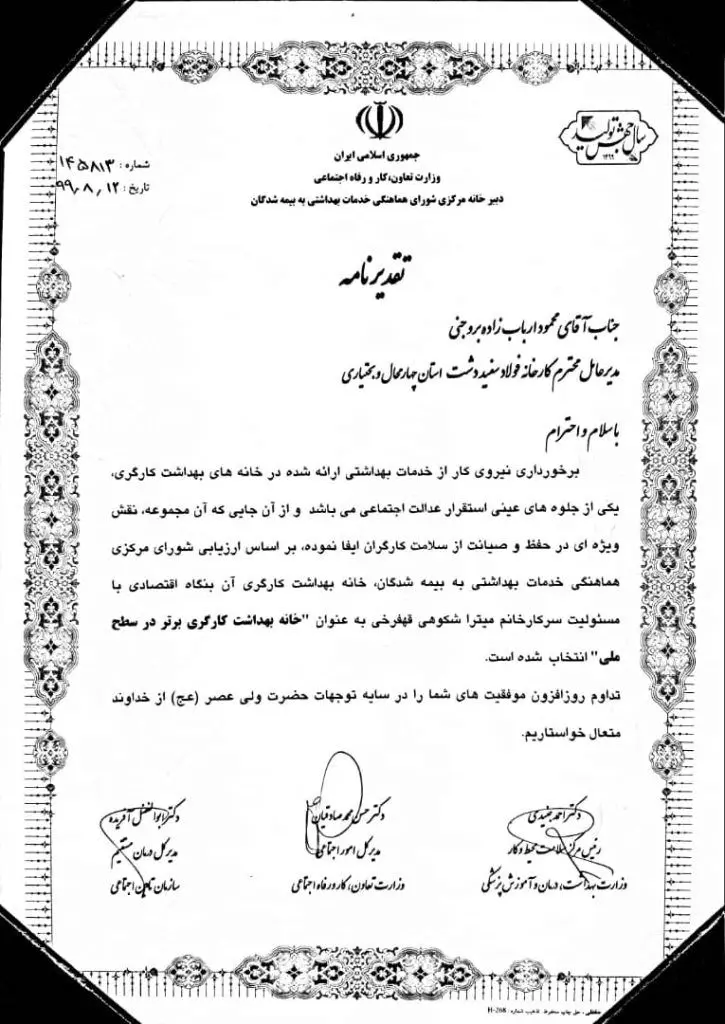 سال جهش تولید
۱۳۹۹
جمهوری اسلامی ایران
وزارت تعاون،کار و رفاه اجتماعی
دبیر خانه مرکزی شورای هماهنگی خدمات بهداشتی به بیمه شدگان
شماره : ۱۴۵۸۱۳
تاریخ : ۹۹٫۸٫۱۲
تقدیرنامه
جناب آقای محمود ارباب زاده بروجنی
مدیرعامل محترم کارخانه فولاد سفید دشت استان چهارمحال و بختیاری
با سلام و احترام
برخورداری نیروی کار از خدمات بهداشتی ارائه شده در خانه های بهداشت کارگری،
یکی از جلوه های عینی استقرار عدالت اجتماعی می باشد و از آن جایی که آن مجموعه، نقش
ویژه ای در حفظ و صیانت از سلامت کارگران ایفا نموده، بر اساس ارزیابی شورای مرکزی
هماهنگی خدمات بهداشتی به بیمه شدگان، خانه بهداشت کارگری آن بنگاه اقتصادی با
مسئولیت سرکارخانم میترا شکوهی قهفرخی به عنوان "خانه بهداشت کارگری برتر در سطح
ملی" انتخاب شده است.
تداوم روزافزون موفقیت های شما را در سایه توجهات حضرت ولی عصر (عج) از خداوند
متعال خواستاریم.
دکتر احمد جنیدی
رئیس مرکز سلامت محیط و کار
وزارت بهداشت، درمان و آموزش پزشکی
دکتر حسن محمد صادقیان
مدیر کل امور اجتماعی
وزارت تعاون، کار و رفاه اجتماعی
دکتر ابوالفضل آفریده
مدیر کل درمان مستقیم
سازمان تامین اجتماعی
H-268